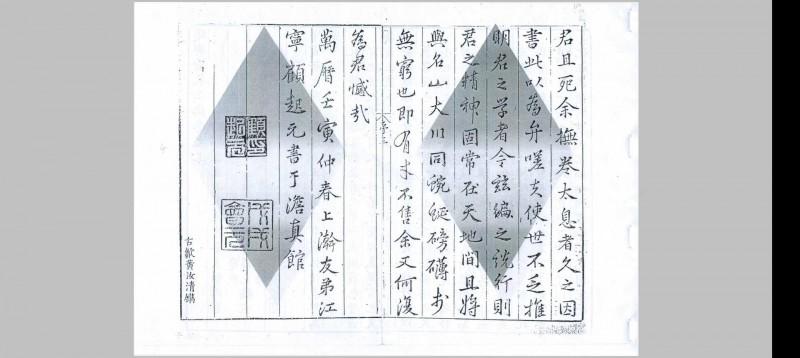 君且死余撫卷太息者久之因
書此以為弁嗟夫使世不乏推
明君之学者令茲編之說行則
君之精神固常在天地間且將
與名山大川同蜿蜒磅礴於
無窮也即有才不售余又何復
為君憾哉
萬曆壬寅仲春上澣友弟江
寧顧起元書于澹真館
顧印
起元
古歙黃汝清鐫